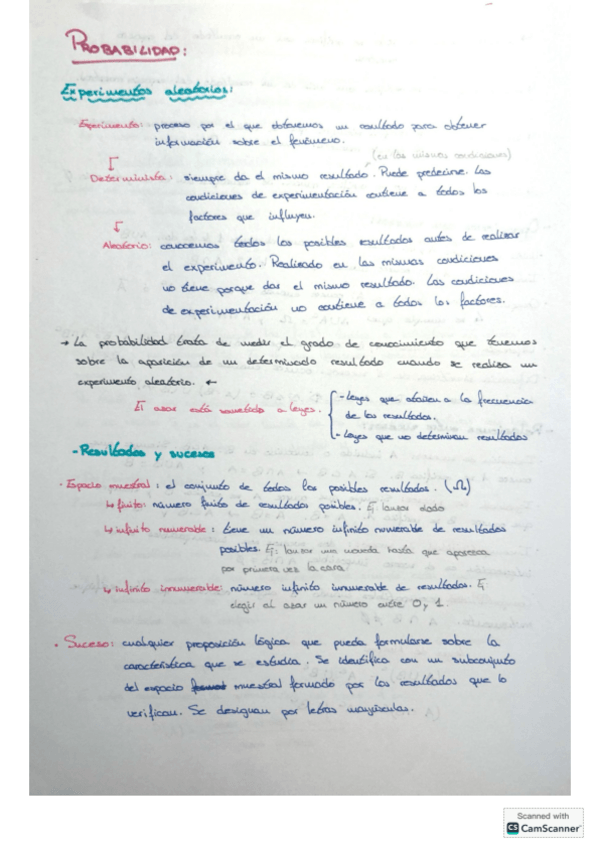 PROBABILIDAD:
Experimentos aleatorios:
Experimento: proceso por el que obtenemos un resultado para obtener
información sobre el fenómeno.
(en las mismas condiciones)
Determinista: siempre da el mismo resultado. Puede predecirse. Las
condiciones de experimentación contiene a todos los
factores que influyen.
Aleatorio: conocemos todos los posibles resultados antes de realizar
el experimento. Realizado en las mismas condiciones
no tiene porque dar el mismo resultado. Las condiciones
de experimentación no contiene a todos los factores.
→ La probabilidad trata de medir el grado de conocimiento que tenemos
sobre la aparición de un determinado resultado cuando se realiza un
experimento aleatorio. ←
El azar está sometido a leyes.
- leyes que atañen a la frecuencia
de los resultados.
- leyes que no determinan resultados
- Resultados y sucesos
· Espacio muestral: el conjunto de todos los posibles resultados. (Ω)
↳ finito: número finito de resultados posibles. Ej lanzar dado
↳ infinito numerable: tiene un número infinito numerable de resultados
posibles. Ej: lanzar una moneda hasta que aparezca
por primera vez la cara.
↳ infinito innumerable: número infinito innumerable de resultados. Ej
elegir al azar un número entre 0 y 1.
· Suceso: cualquier proposición lógica que pueda formularse sobre la
característica que se estudia. Se identifica con un subconjunto
del espacio muestral formado por los resultados que lo
verifican. Se designan por letras mayúsculas.
Scanned with
CS CamScanner